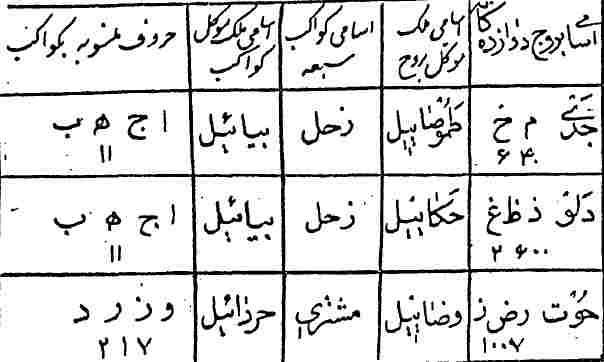 اسامی بروج دوازده‌گانه | اسامی ملک موکل بروج | اسامی کواکب سبعه | اسامی ملک موکل کواکب | حروف منسوبه بکواکب
جدی م خ ۶۴۰ | زحل | بیائیل | ا ج ه ب ۱۱
دلو ذ ظ غ ۲۶۰۰ | حکائیل | زحل | بیائیل | ا ج ه ب ۱۱
حوت ر ض ز ۱۰۰۷ | وضائیل | مشتری | حرزائیل | و ز ر د ۲۱۷